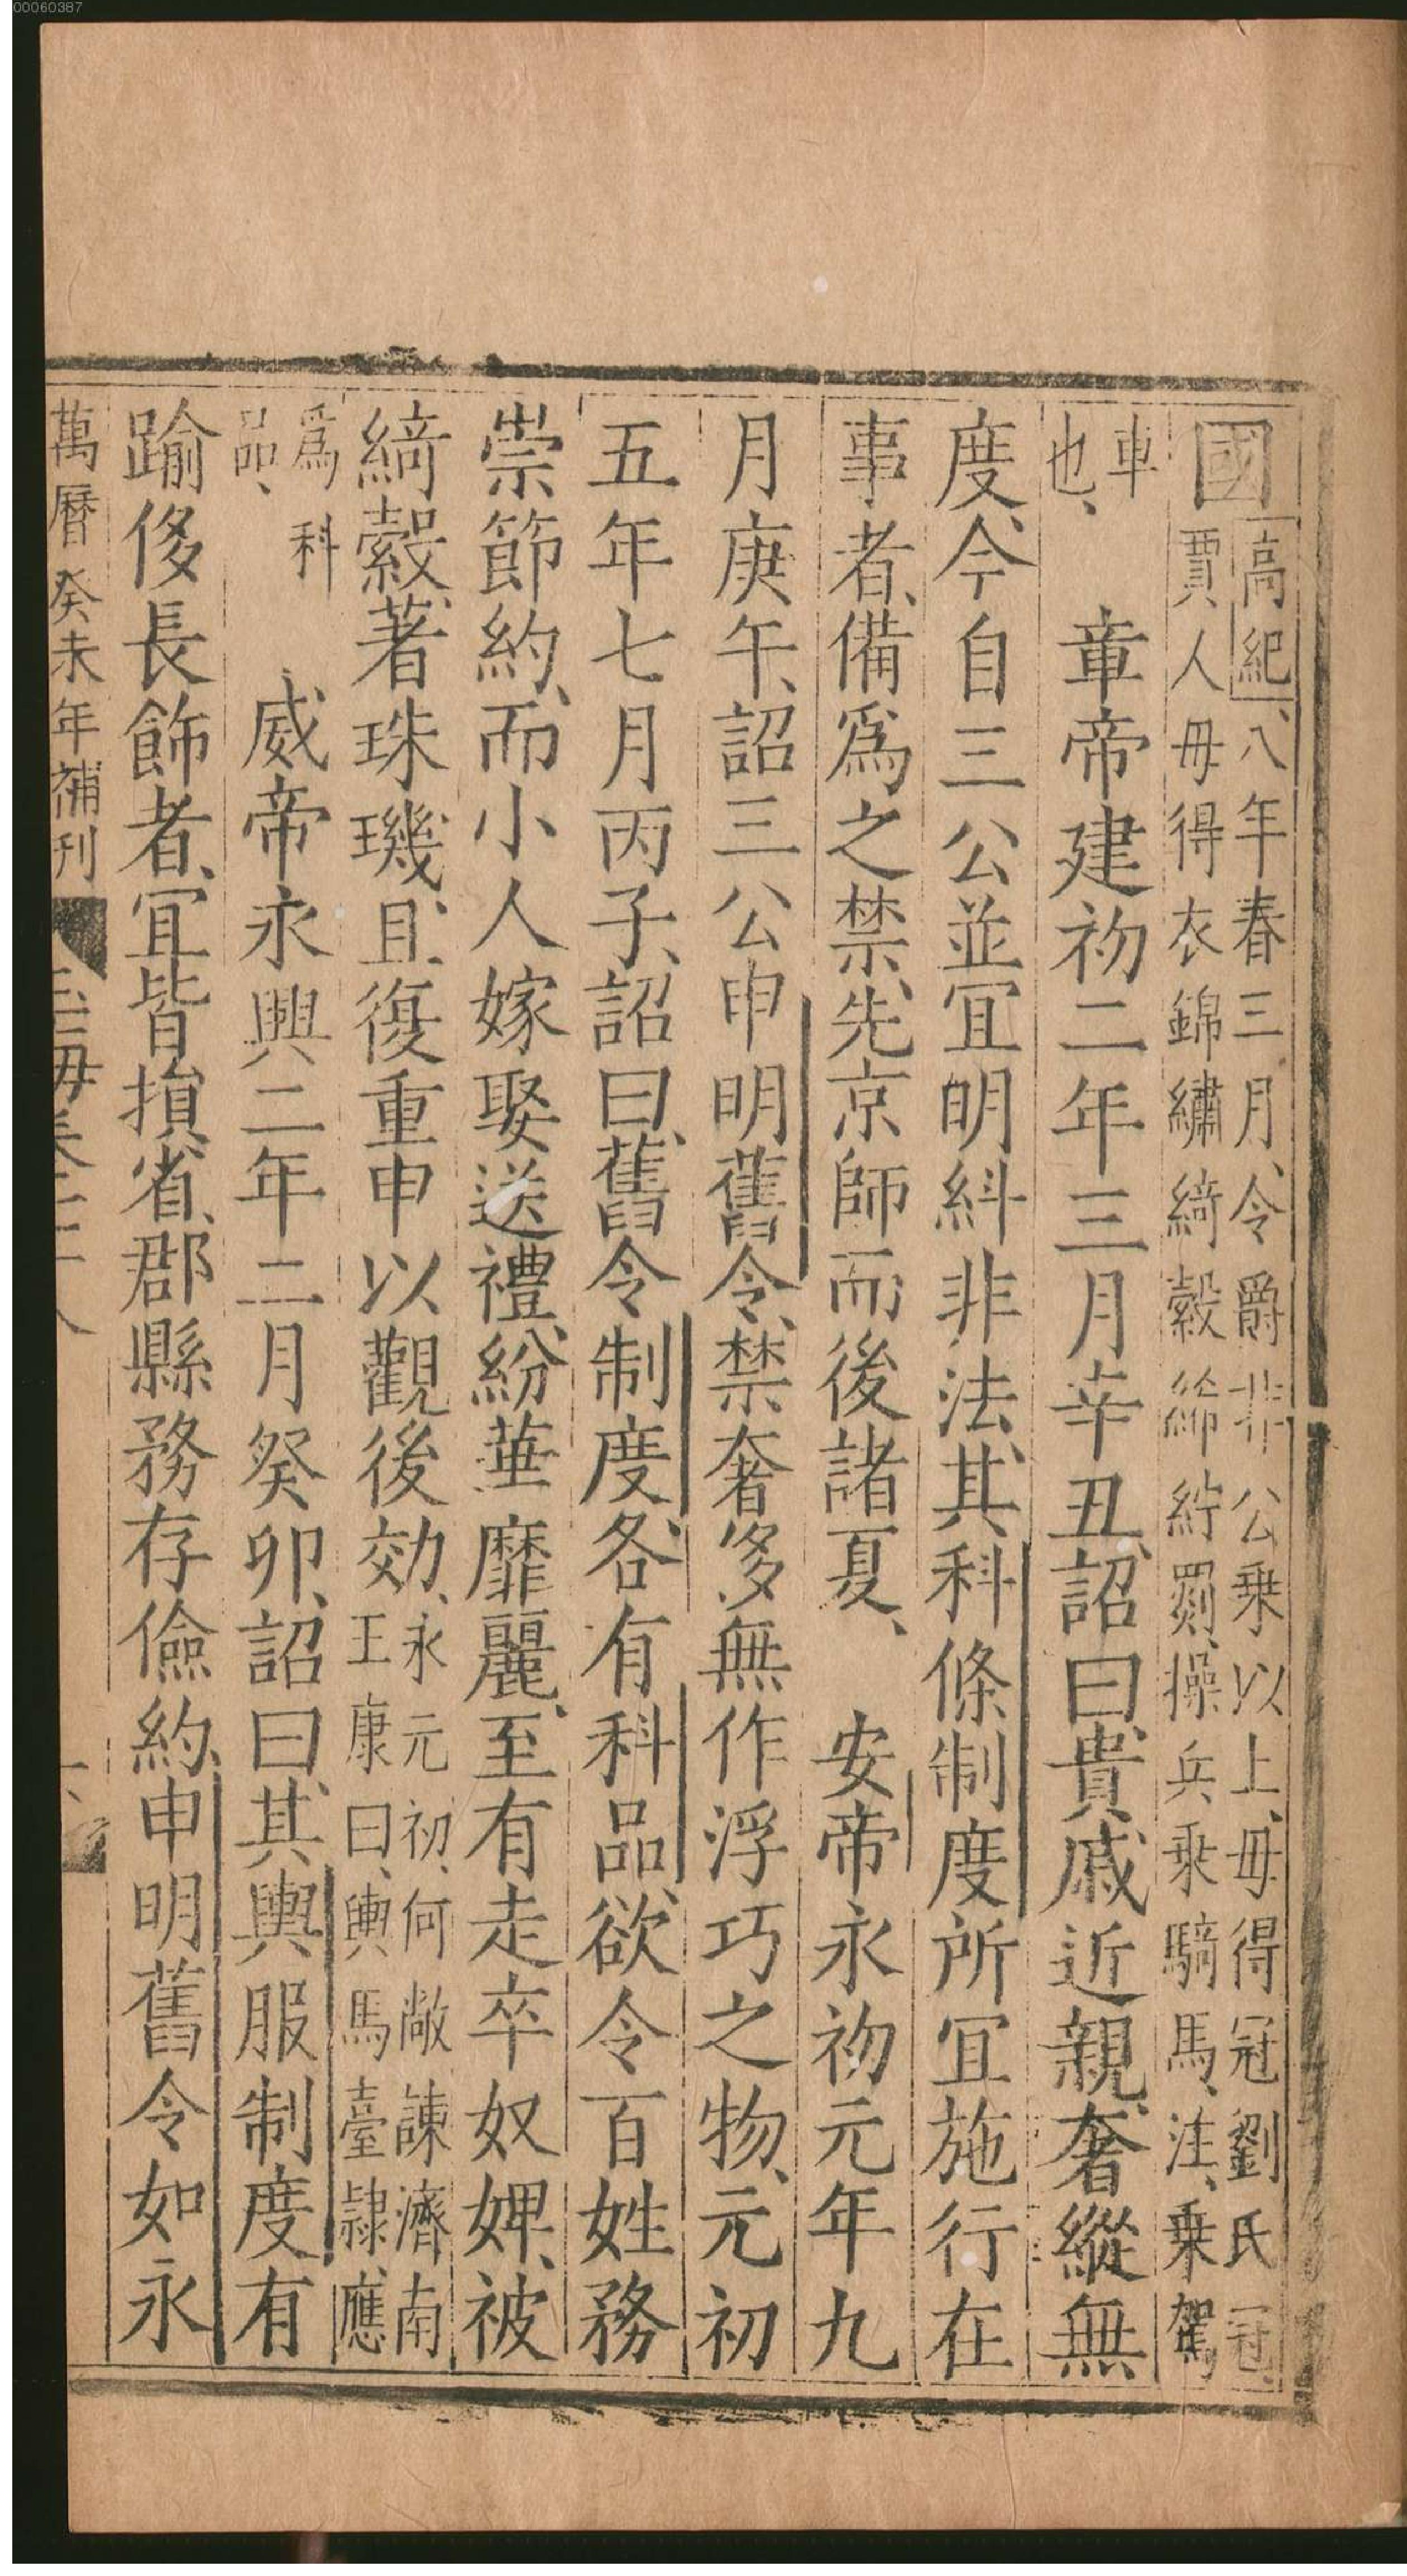 00060387
國
高紀、八年春三月、令爵非公乗以上、毋得冠劉氏冠、
賈人毋得衣錦繡綺縠絺紵罽、操兵乗騎馬、注、乗駕
車
也、
章帝建初二年三月辛丑、詔曰、貴戚近親、奢縱無
度、今自三公並宜明糾非法、其科條制度所宜施行在
事者、備爲之禁、先京師而後諸夏、 安帝永初元年九
月庚午、詔三公申明舊令、禁奢侈無作浮巧之物、元初
五年七月丙子、詔曰、舊令制度、各有科品、欲令百姓務
崇節約、而小人嫁娶送禮、紛華靡麗、至有走卒奴婢、被
綺縠、著珠璣、且復重申以觀後効、
永元初、何敞諫濟南
王康曰、輿馬臺隷、應
爲科
品、
威帝永興二年二月癸卯、詔曰、其輿服制度有
踰侈長飾者、宜皆損省、郡縣務存儉約、申明舊令如永
萬曆癸未年補刊